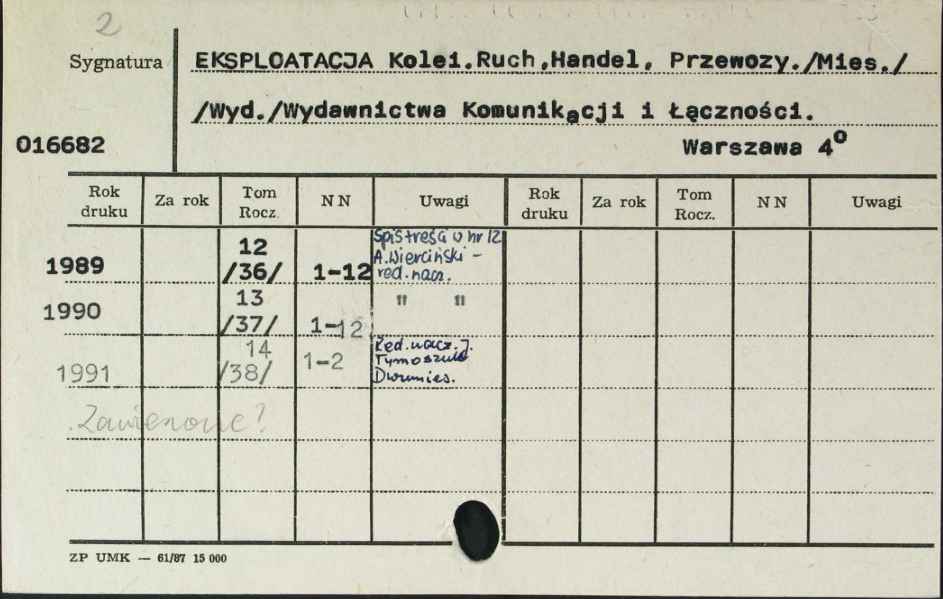 2
Sygnatura
EKSPLOATACJA Kolei.Ruch,Handel, Przewozy./Mies./
/Wyd./Wydawnictwa Komunikacji i Łączności.
016682
Warszawa 4º
Rok druku Za rok Tom Rocz. NN Uwagi Rok druku Za rok Tom Rocz. NN Uwagi
1989 12 /36/ 1-12 Spis treści w nr 12 A.Wierciński - red. nacz.
1990 13 /37/ 1-12 " "
1991 14 /38/ 1-2 Red. nacz. J. Dwumies.
ZP UMK — 61/87 15 000